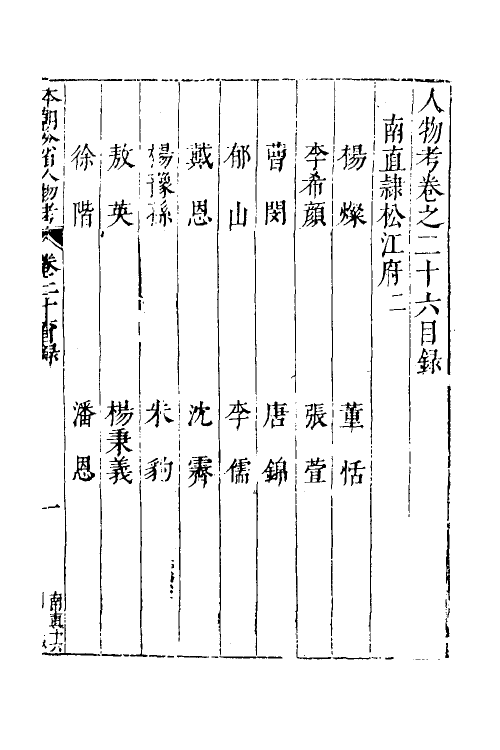 人物考卷之二十六目録
南直隸松江府二
楊燦 董恬
李希顔 張萱
曹閔 唐錦
郁山 李儒
戴恩 沈霽
楊豫孫 朱豹
敖英 楊秉義
徐階 潘恩
本朝分省人物考 卷二十六目録 一 南直十六